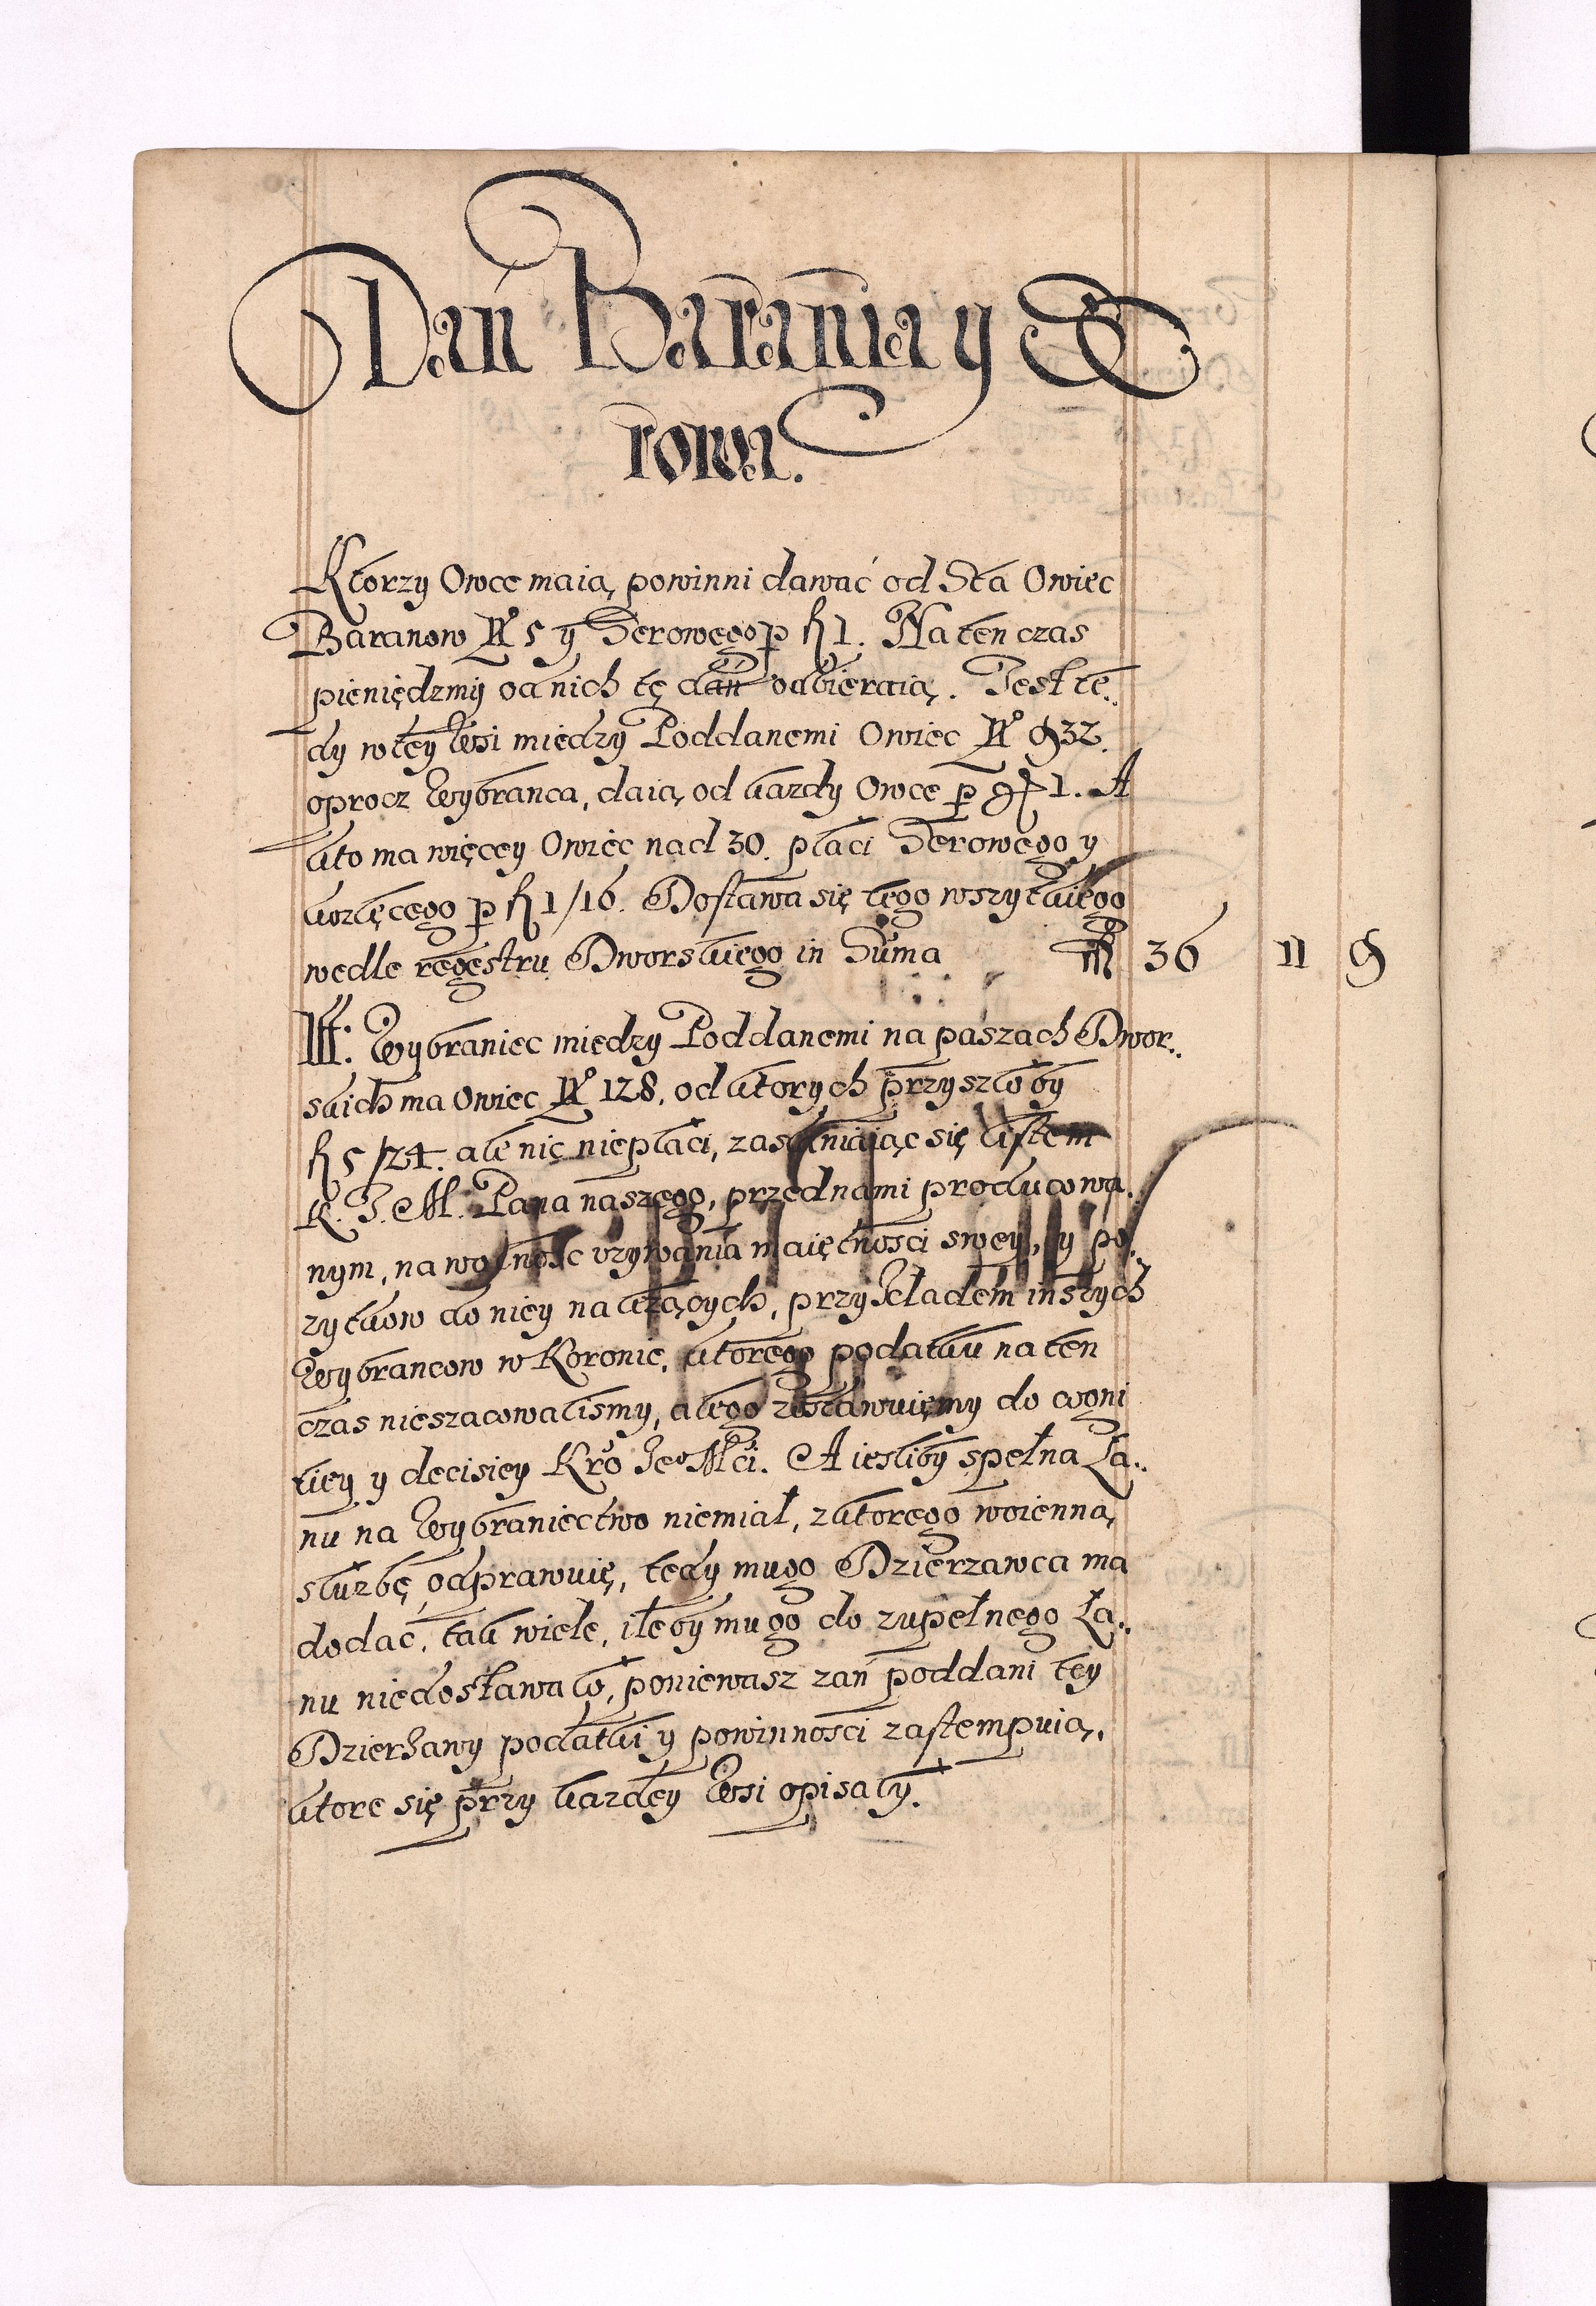 Dań Barania y Se
rowa.
Ktorzy Owce maią, powinni dawać od Sta Owiec
Baranow No 5 y Serowego p fl 1. Na ten czas
pieniędzmy od nich tę dań odbieraią. Jest te..
dy w tey Wsi między Poddanemi Owiec No 932.
oprocz Wybranca, daią od kazdy Owce p gr 1. A
kto ma więcey Owiec nad 30. płaci Serowego y
kozlęcego p fl 1/16. Dostawa się tego wszytkiego
wedle regestru Dworskiego in Suma fl 36 11 9
NB: Wybraniec między Poddanemi na paszach Dwor..
skich ma Owiec No 128, od ktorych przyszłoby
fl 5/24. ale nic niepłaci, zasłaniaiąc się listem
K. J. M. Pana naszego, przed nami producowa..
nym, na wolnosc vzywania maiętnosci swey, y po..
zytkow do niey nalezących, przykładem inszych
Wybrancow w Koronie, ktorego podatku na ten
czas nieszacowalismy, a tego zostawuięmy do cogni
tiey y decisiey Kro Jeo Mci. A iesliby spełna Ła..
nu na Wybraniectwo niemiał, z ktorego woienną
słuzbę odprawuię, tedy mu go Dzierzawca ma
dodać, tak wiele, ileby mu go do zupełnego Ła..
nu niedostawało, poniewasz zań poddani tey
Dzierzawy podatki y powinnosci zastempuią,
ktore się przy kazdey Wsi opisały.